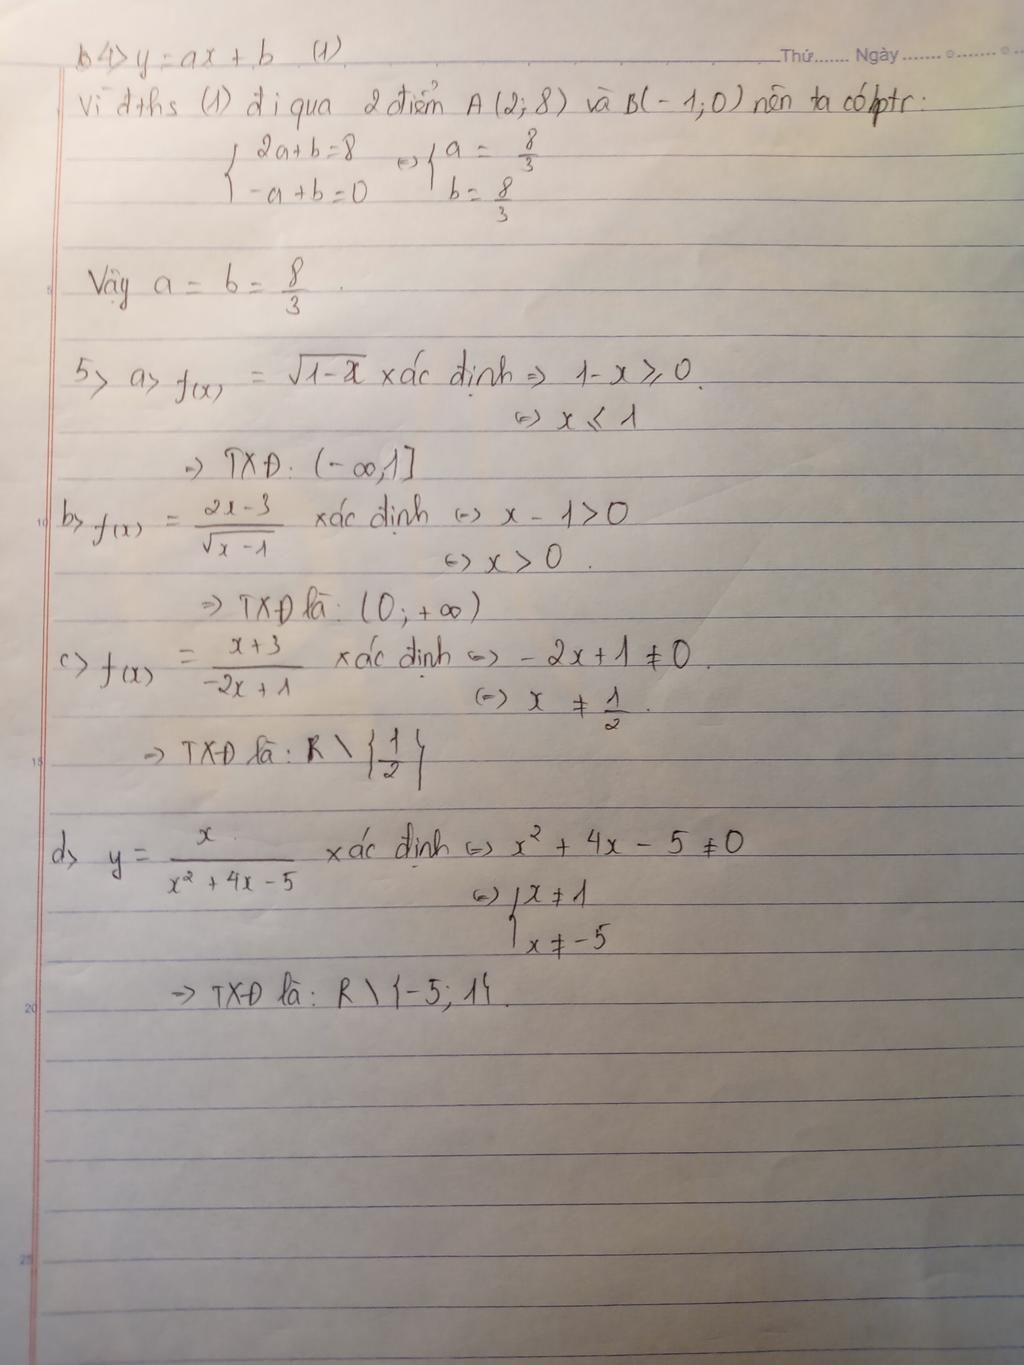 b4> y = ax + b (1)
Thứ....... Ngày
Vì đths (1) đi qua 2 điểm A (2; 8) và B(-1; 0) nên ta có hptr:
{ 2a+b=8 <=> { a = 8/3
-a+b=0 b = 8/3
5
Vậy a = b = 8/3.
5> a> f(x) = √1-x xác định => 1-x ≥ 0.
<=> x ≤ 1
=> TXĐ: (-∞,1]
10
b> f(x) = 2x-3/√x-1 xác định <=> x - 1 > 0
<=> x > 0.
=> TXĐ là: (0; +∞)
c> f(x) = x+3/-2x+1 xác định <=> -2x+1 ≠ 0.
<=> x ≠ 1/2.
15
=> TXĐ là: R \ {1/2}
d> y = x/x²+4x-5 xác định <=> x² + 4x - 5 ≠ 0
<=> { x ≠ 1
x ≠ -5
20
=> TXĐ là: R \ {-5; 1}.
25